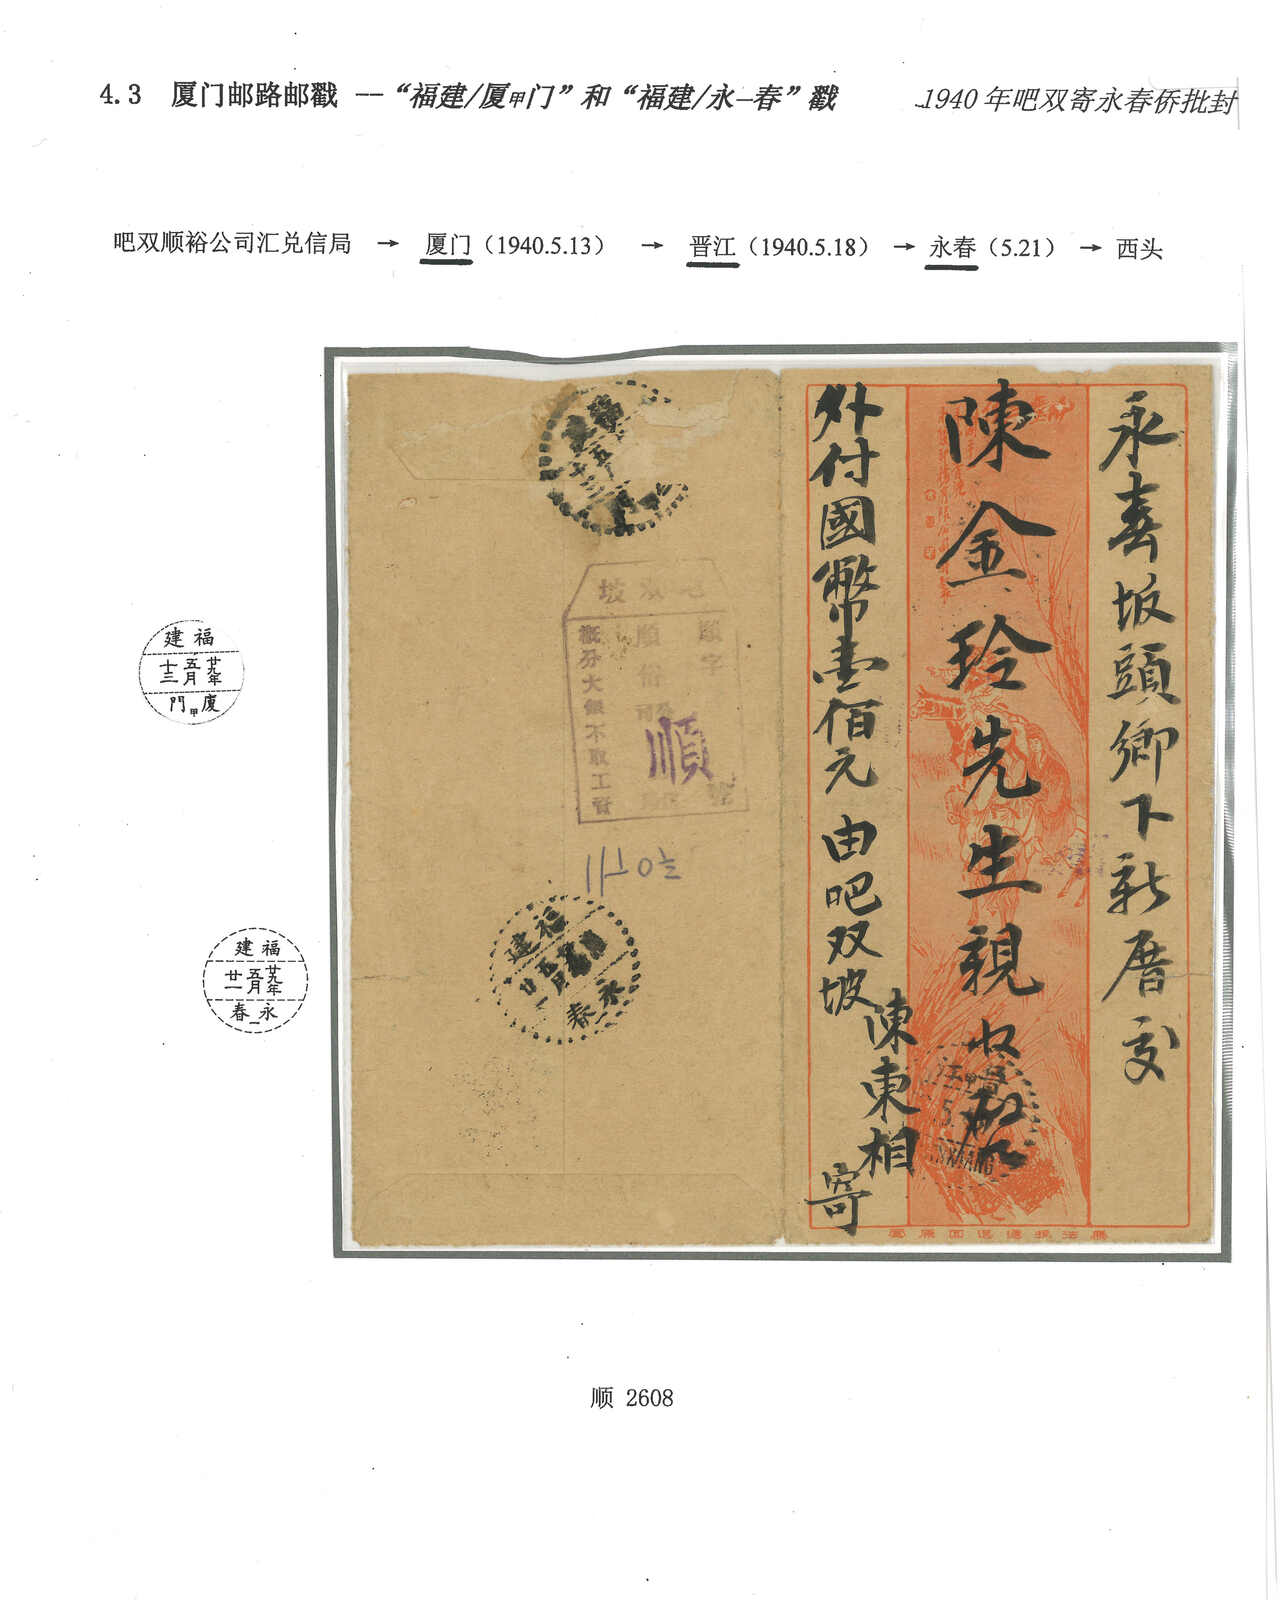 4.3 厦门邮路邮戳 --“福建/厦甲门”和“福建/永一春”戳
1940年吧双寄永春侨批封
吧双顺裕公司汇兑信局 → 厦门（1940.5.13） → 晋江（1940.5.18） → 永春（5.21） → 西头
福建
廿九年
五月
十三
厦甲門
福建
廿九年
五月
廿一
永一春
永春坂頭鄉下新厝交
陳金玲先生親收
外付國幣壹佰元 由吧双坡
陳東相
寄
吧双坡
順字
順裕
公司
概分大銀不取工資
順
號
福建
五月
廿一
永一春
江甲晋
5.
廈
五
十三
顺 2608